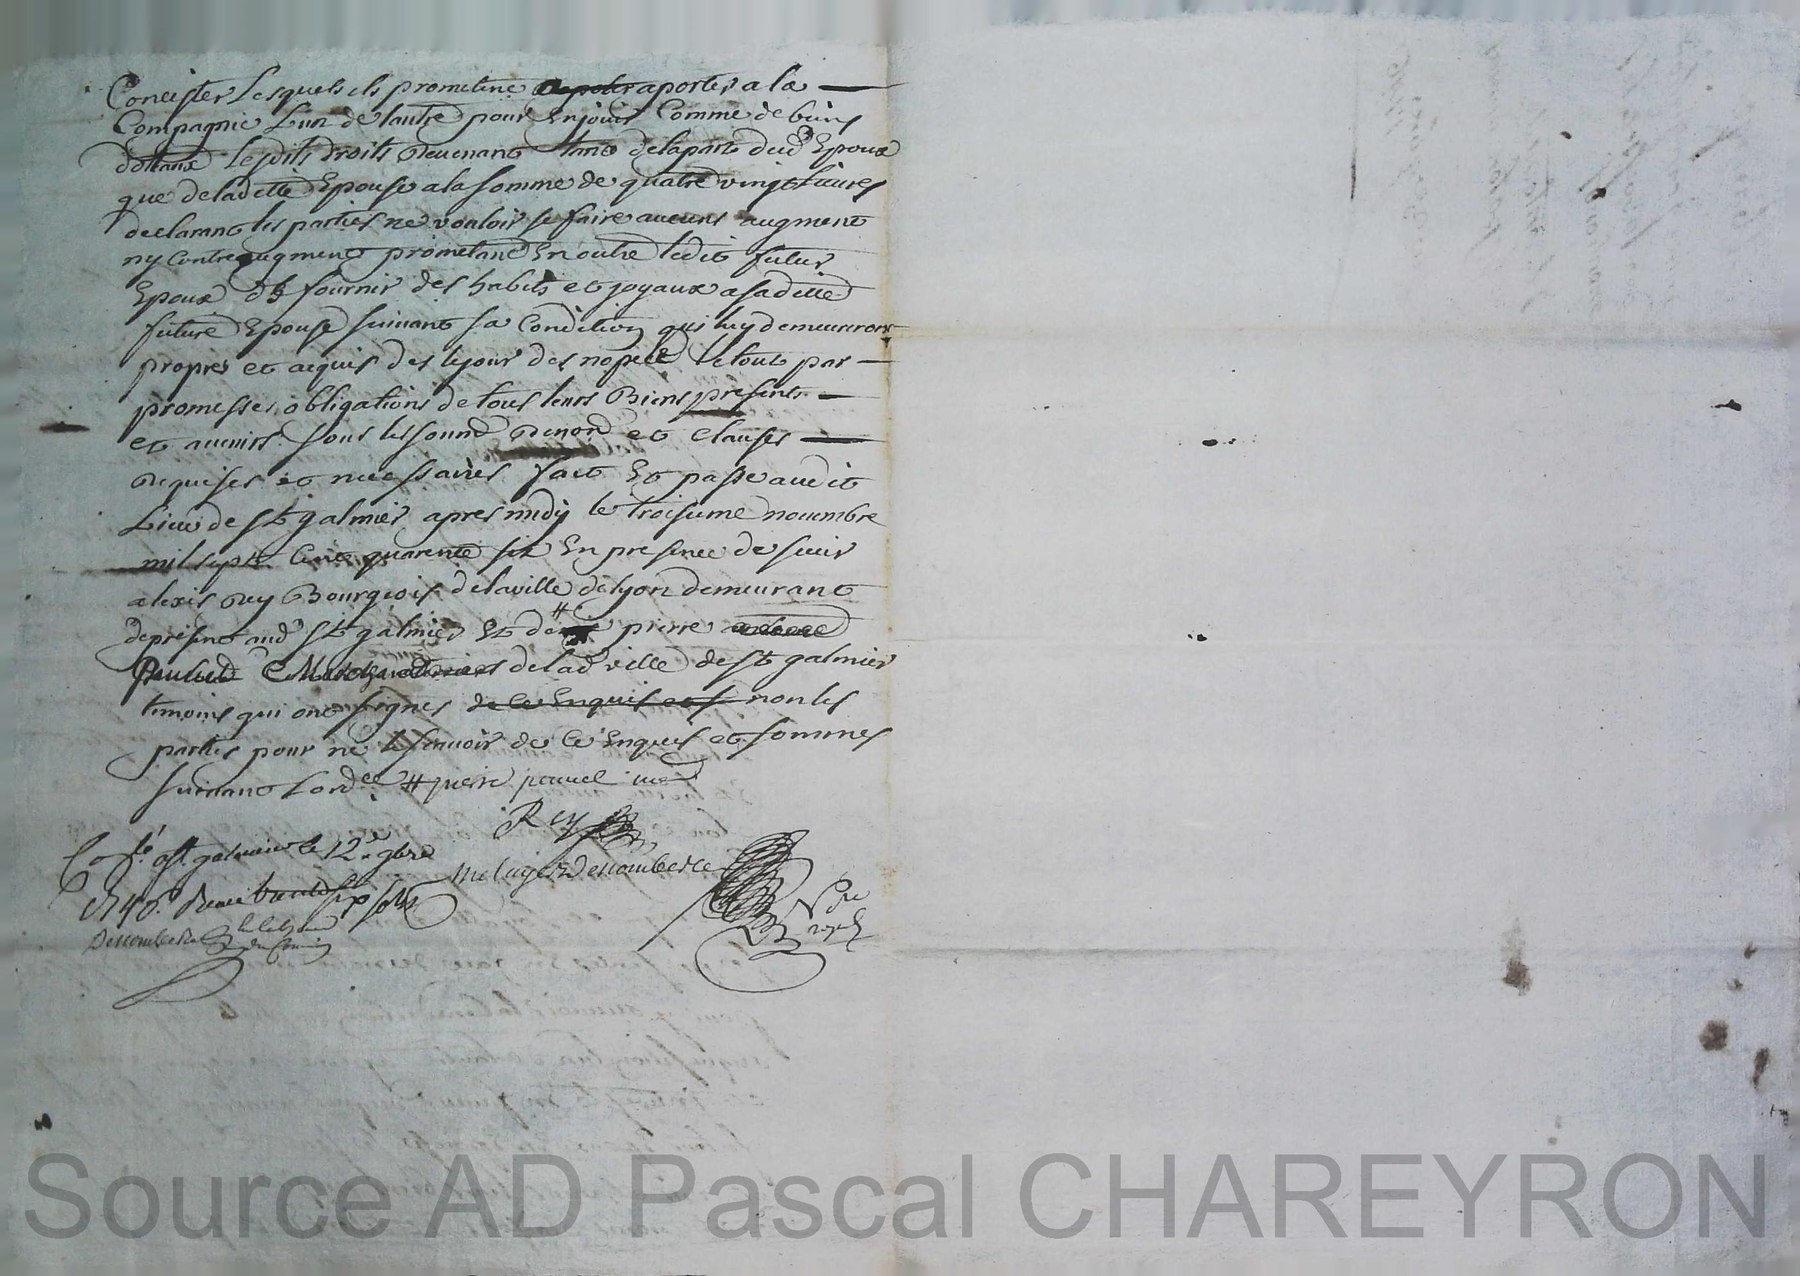 Concister Lesquels ils prometent aporter a la
Compagnie Lun de lautre pour En jouir Comme de biens
dotaux Lesdits droits Revenant tant de la part dud Epoux
que de ladette Epouse a la somme de quatre vingt Livres
declarant les parties ne vouloir se faire aucuns augment
ny Contreaugment prometant En outre ledit futur
Epoux de fournir des habits et joyaux a sa ditte
future Epouse suivant sa Condition qui luy demeureront
propres et acquis des le jour des nopces le tout par
promesses obligations de tous leurs Biens presents
et avenirs sous les soumd Renond et Clauses
Requises et necessaires fait Et passe audit
Lieu de st galmier apres midy le troisieme novembre
mil sept Cent quarente six En presence de sieur
alexis Rey Bourgeois de la ville de lyon demeurant
de present aud st galmier Et de pierre
de lad ville de st galmier
temoins qui ont signes de ce Enquis et s non les
parties pour ne le scavoir de Ce Enquis et sommes
suivant Lord.ce # pierre
Rey
Con.lé a st galmier le 12e 9bre
1746. Receu six sols